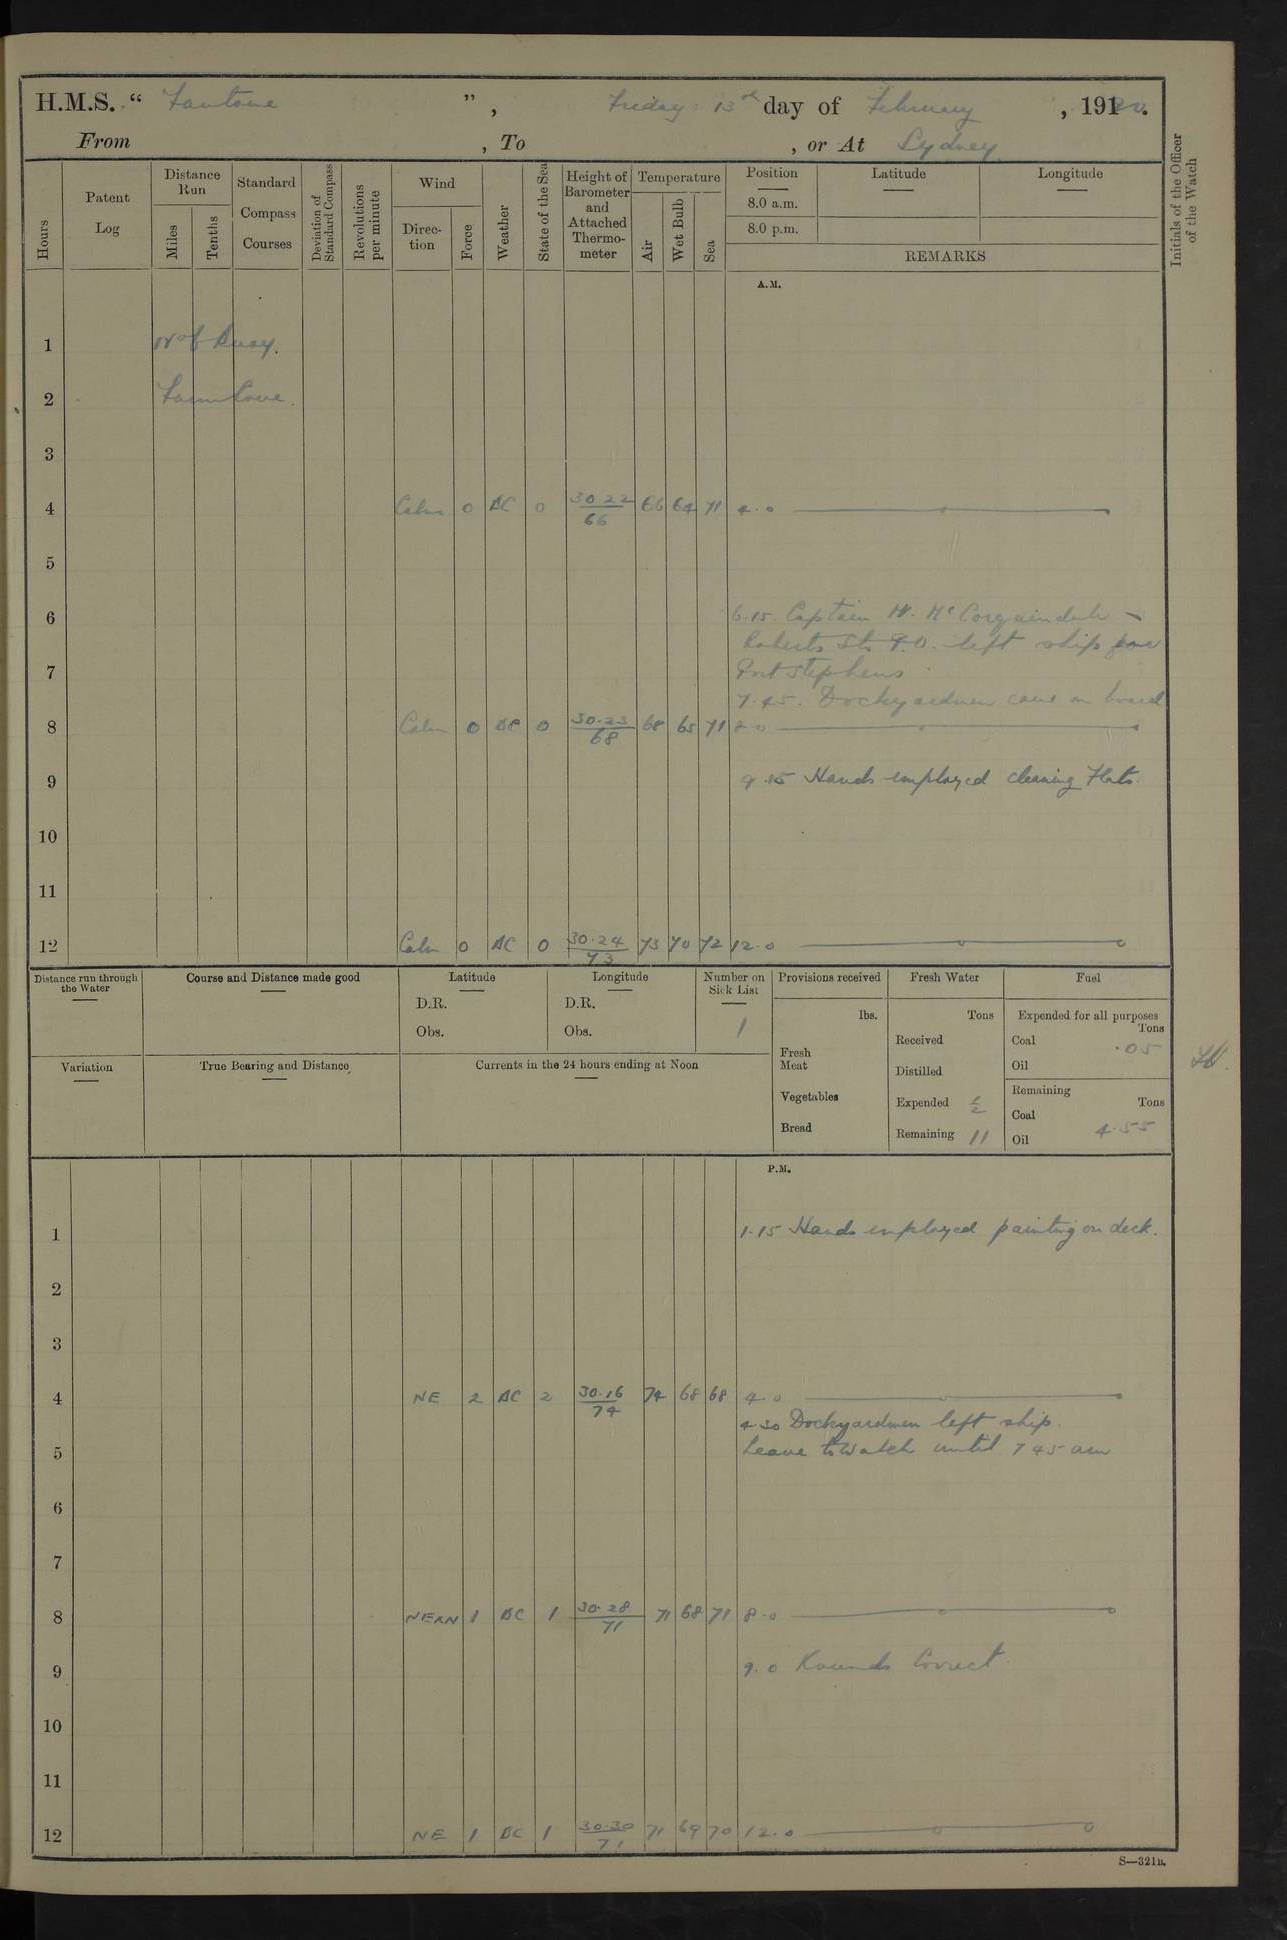 H.M.S. “ Fantome ”, Friday 13th day of February, 1920.
From , To , or At Sydney
Hours
Patent Log
Distance Run
Miles
Tenths
Standard Compass Courses
Deviation of Standard Compass
Revolutions per minute
Wind
Direction
Force
Weather
State of the Sea
Height of Barometer and Attached Thermometer
Temperature
Air
Wet Bulb
Sea
Position
8.0 a.m.
8.0 p.m.
Latitude
Longitude
REMARKS
Initials of the Officer of the Watch
A.M.
1 Buoy.
2 Farm Cove.
3
4 Calm 0 BC 0 30.22 66 66 64 71 4.0
5
6 6.15. Captain
Roberts left ship for
7 Port Stephens
7.45. Dockyardmen came on board
8 Calm 0 BC 0 30.23 68 68 65 71 8.0
9 9.15 Hands employed cleaning Flats.
10
11
12 Calm 0 BC 0 30.24 73 73 70 72 12.0
Distance run through the Water
Course and Distance made good
Latitude
D.R.
Obs.
Longitude
D.R.
Obs.
Number on Sick List
1
Provisions received
lbs.
Fresh Meat
Vegetables
Bread
Fresh Water
Tons
Received
Distilled
Expended ½
Remaining 11
Fuel
Expended for all purposes
Tons
Coal .05
Oil
Remaining
Tons
Coal
Oil 4.55
Variation
True Bearing and Distance
Currents in the 24 hours ending at Noon
P.M.
1 1.15 Hands employed painting on deck.
2
3
4 NE 2 BC 2 30.16 74 74 68 68 4.0
4.30 Dockyardmen left ship.
5 Leave to Watch until 7.45 am
6
7
8 NE×N 1 BC 1 30.28 71 71 68 71 8.0
9 9.0 Rounds Correct
10
11
12 NE 1 BC 1 30.30 71 71 69 70 12.0
S—321B.